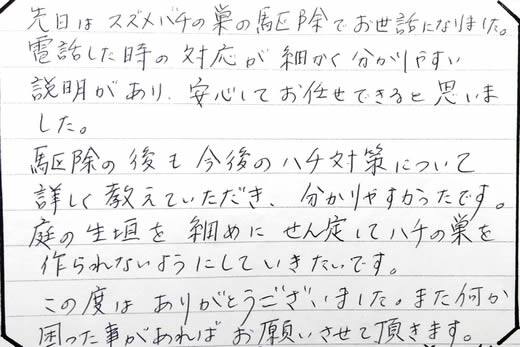 先日は スズメバチの巣の駆除でお世話になりました。
電話した時の対応が細かく分かりやすい
説明があり、安心してお任せできると思いま
した。
駆除の後も今後のハチ対策について
詳しく教えていただき、分かりやすかったです。
庭の生垣を細めにせん定してハチの巣を
作られないようにしていきたいです。
この度はありがとうございました。また何か
困った事があればお願いさせて頂きます。